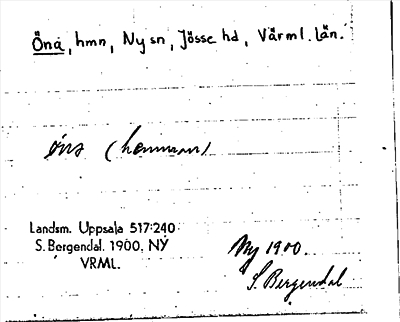 Öna, hmn, Ny sn, Jösse hd, Värml. län.
öns (hemman)
Landsm. Uppsala 517:240
S. Bergendal. 1900. NY
VRML.
Ny 1900.
S. Bergendal